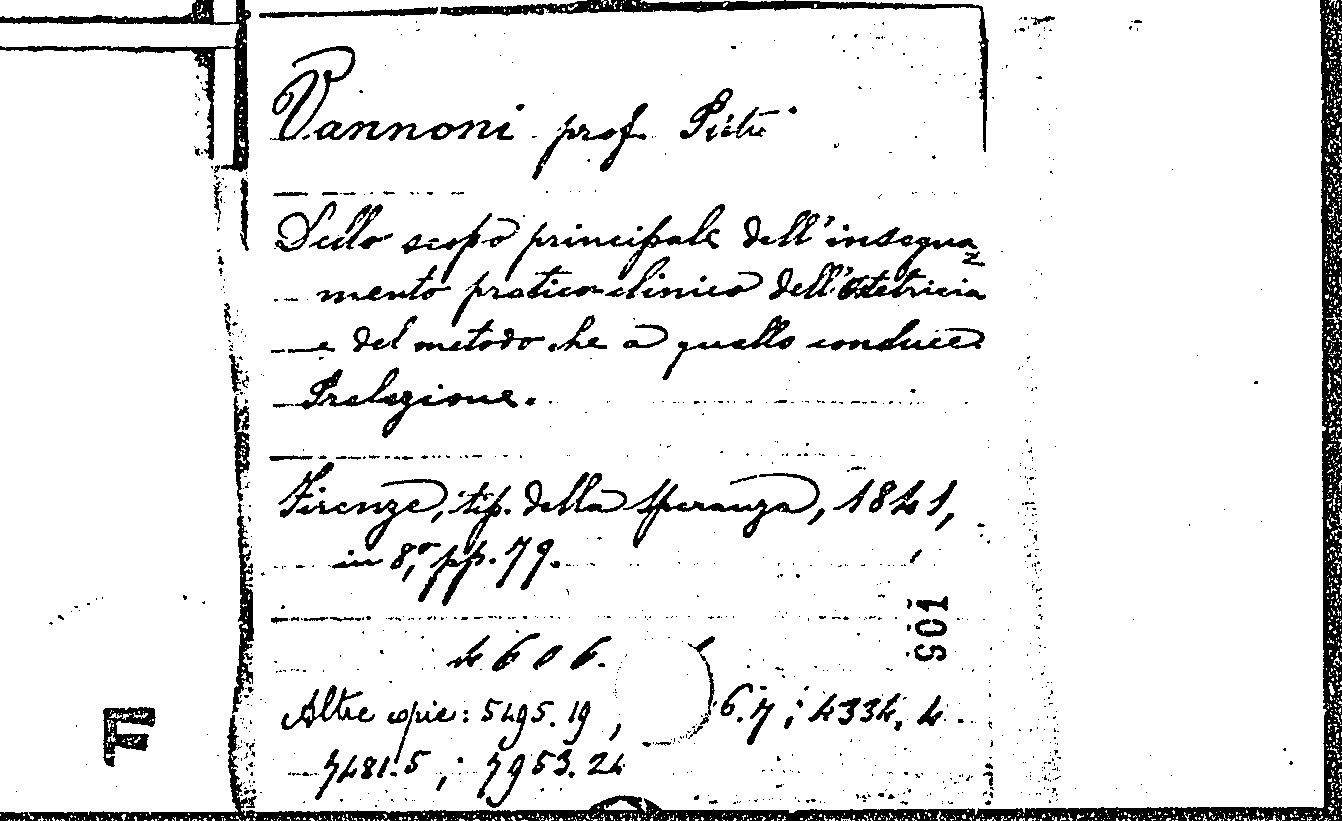 Vannoni prof. Pietro
Dello scopo principale dell'insegna
mento pratico-clinico dell'Ostetricia
e del metodo che a quello conduce.
Prelezione.
Firenze, tip. della Speranza, 1841,
in 8,º pp. 79.
4606.
Altre copie: 5495.19, 6.7; 4334.4.
7481.5; 7953.24
501
F